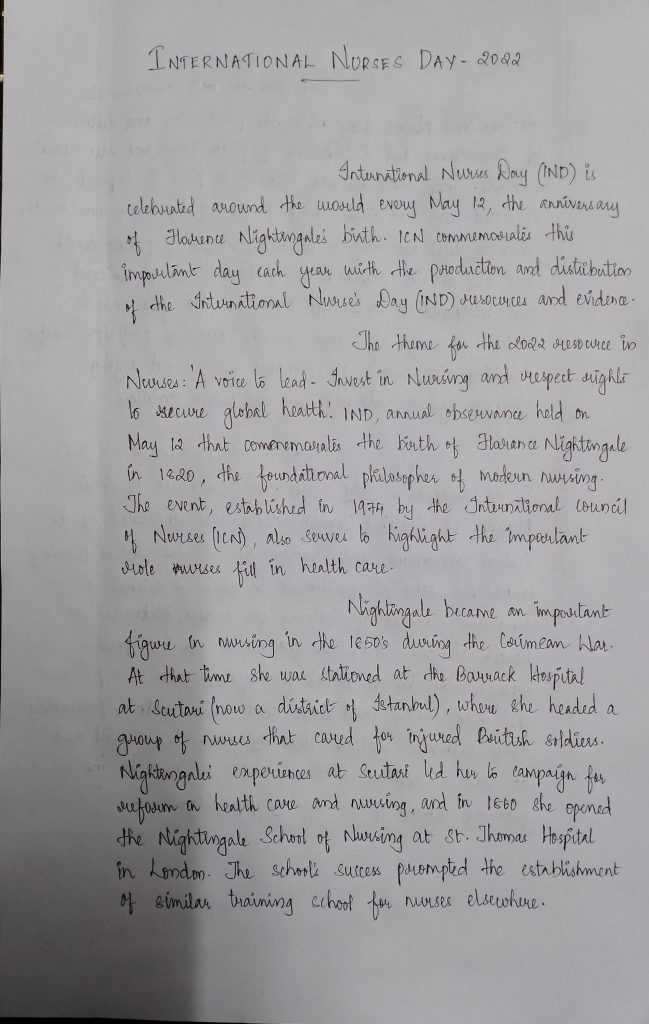 INTERNATIONAL NURSES DAY - 2022
International Nurses Day (IND) is
celebrated around the world every May 12, the anniversary
of Florence Nightingale's birth. ICN commemorates this
important day each year with the production and distribution
of the International Nurse's Day (IND) resources and evidence.
The theme for the 2022 resource is
Nurses: 'A voice to lead - Invest in Nursing and respect rights
to secure global health'. IND, annual observance held on
May 12 that comenemarates the birth of Flarance Nightingale
in 1820, the foundational philosopher of modern nursing.
The event, established in 1974 by the International council
of Nurses (ICN), also serves to highlight the important
role nurses fill in health care.
Nightingale became an important
figure in nursing in the 1850's during the Crimean War.
At that time she was stationed at the Barrack Hospital
at Scutari (now a district of Istanbul), where she headed a
group of nurses that cared for injured British soldiers.
Nightingales experiences at Scutari led her to campaign for
reform on health care and nursing, and in 1860 she opened
the Nightingale School of Nursing at St. Thomas Hospital
in London. The school's success prompted the establishment
of similar training school for nurses elsewhere.